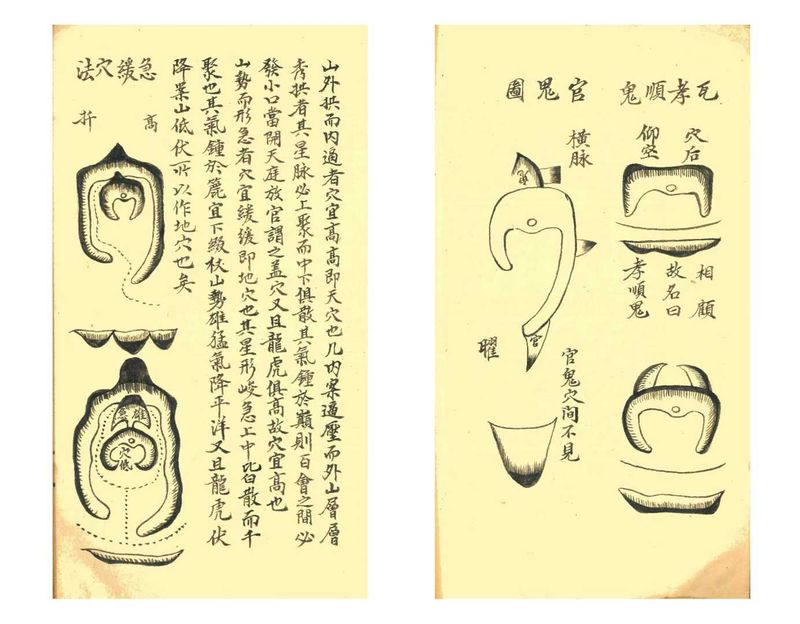 瓦孝順鬼
穴后
仰空
相顧
故名曰
孝順鬼
官鬼圖
橫脉
鬼
官
曜
官鬼穴間不見
山外拱而内逼者穴宜髙髙即天穴也凡内案逼壓而外山層層
秀拱者其星脉必上聚而中下俱散其氣鍾於巔則百會之間必
發小口當開天庭放官謂之盖穴又且龍虎俱髙故穴宜髙也
山勢而形急者穴宜緩緩即地穴也其星形峻急上中皆散而千
聚也其氣鍾於麓宜下綴杖山勢雄猛氣降平洋又且龍虎伏
降案山低伏所以作地穴也矣
急緩穴法
髙
扦
雄
急
穴低